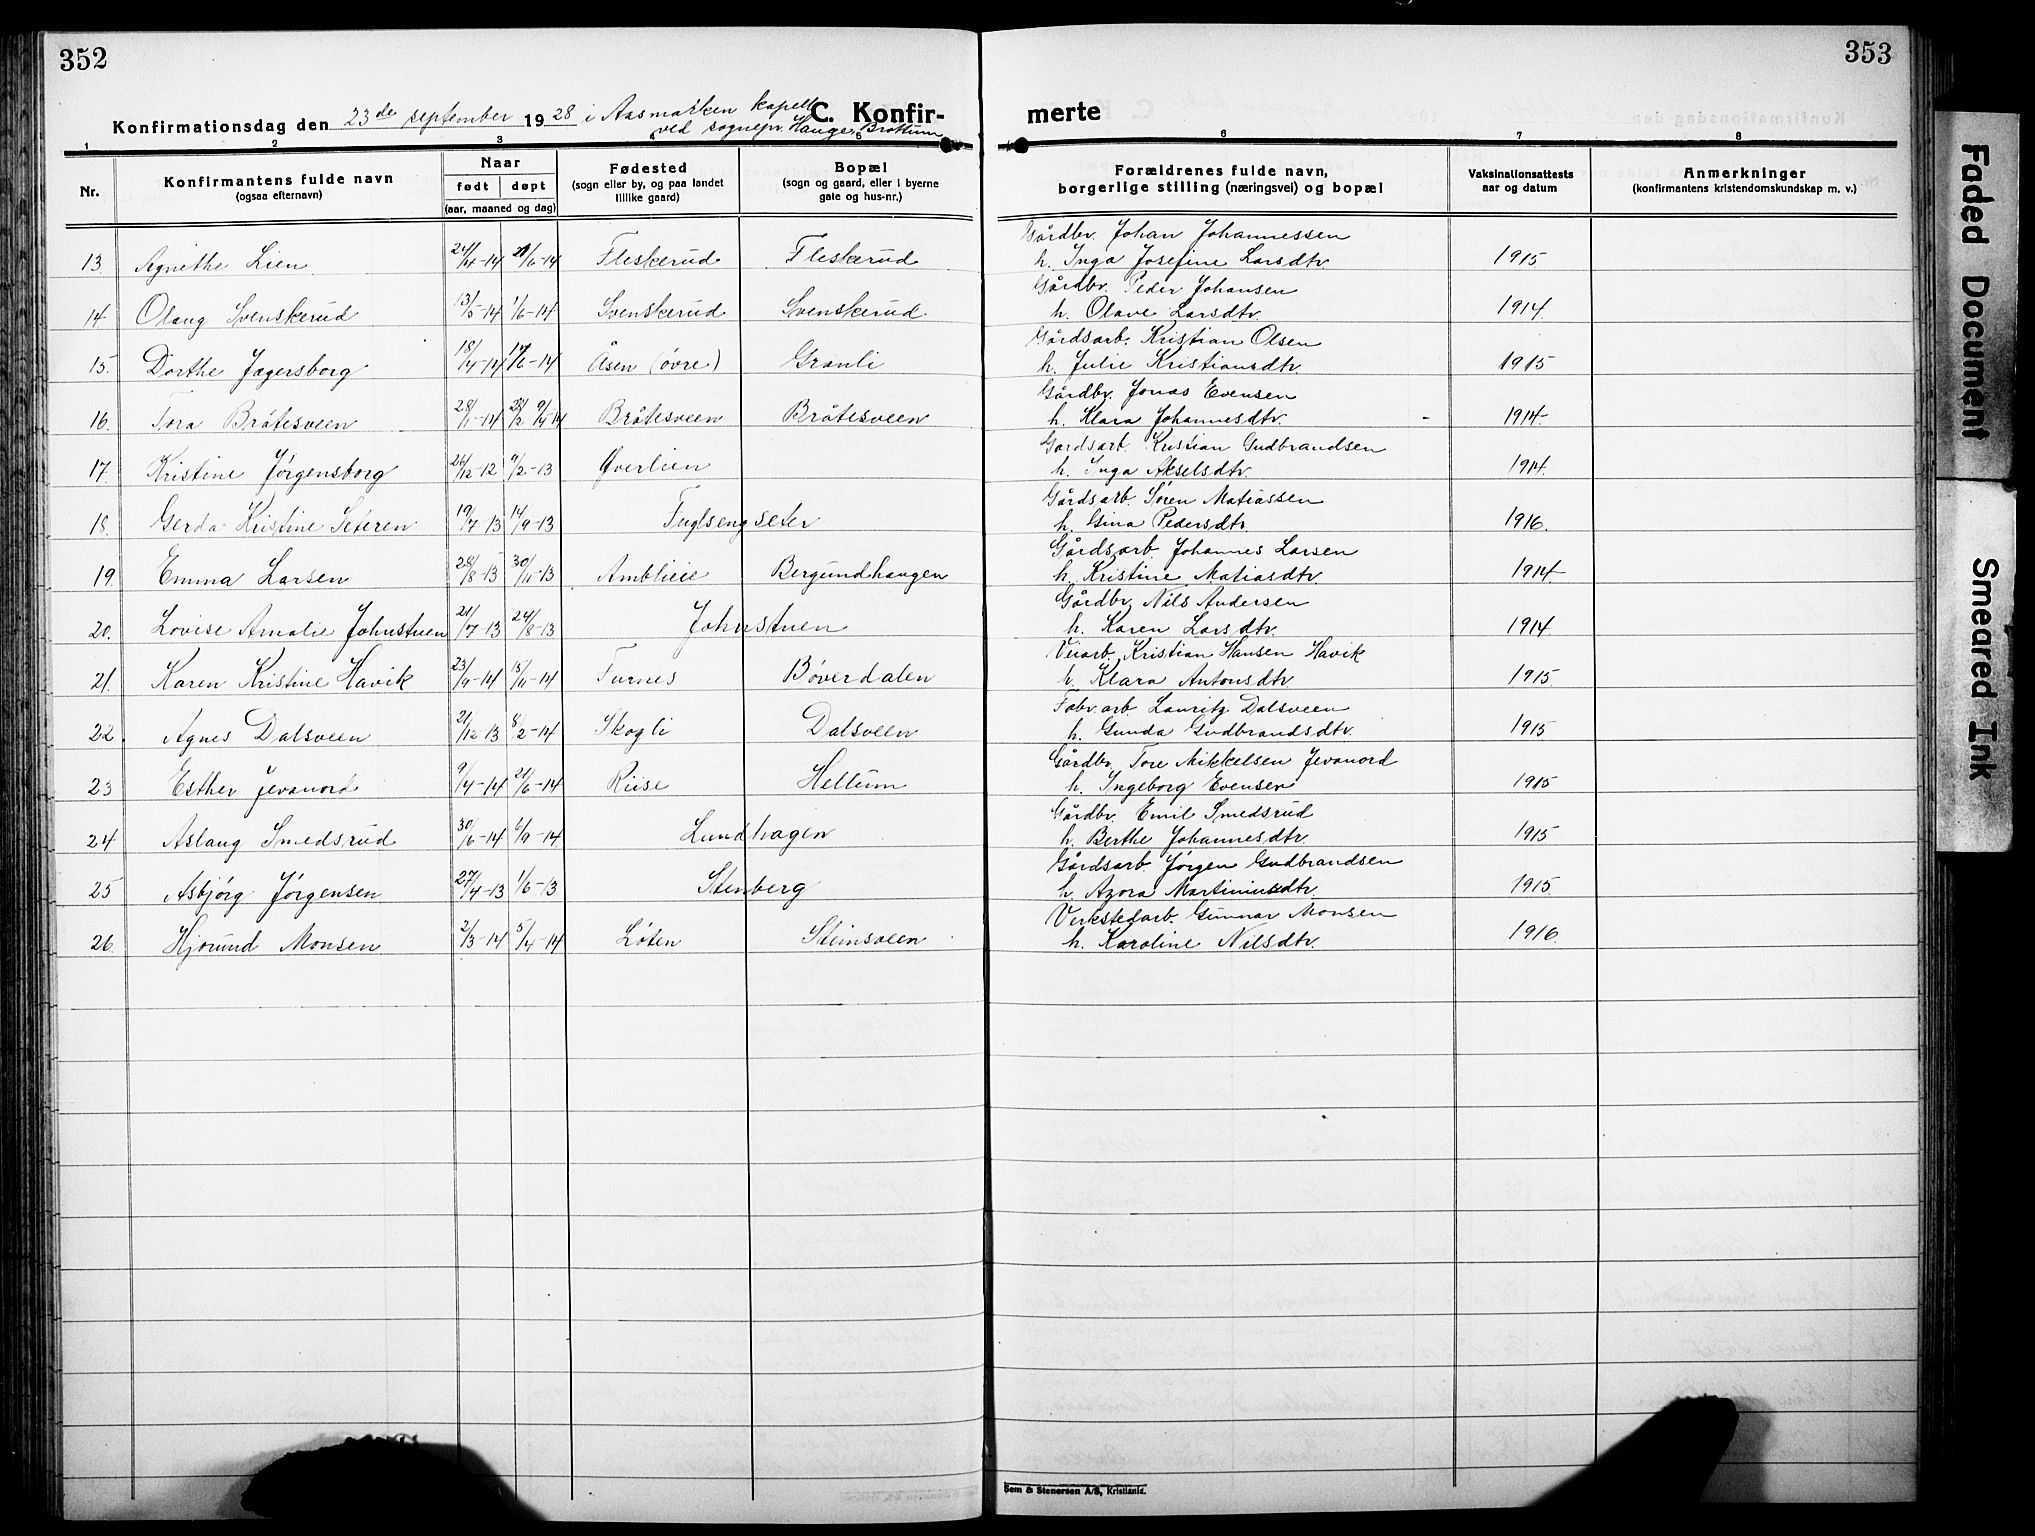 352
353
Konfirmationsdag den 23de september 1928 i Aasmarken kapell C. Konfir-
merte
ved sognepr. Hauge Brøttum
1 2 3 5 6 7 8
Nr. Konfirmantens fulde navn (ogsaa efternavn) Naar født døpt (aar, maaned og dag) Fødested (sogn eller by, og paa landet tillike gaard) Bopæl (sogn og gaard, eller i byerne gate og hus-nr.) Forældrenes fulde navn, borgerlige stilling (næringsvei) og bopæl Vaksinationsattests aar og datum Anmerkninger (konfirmantens kristendomskundskap m. v.)
Gårdbr. Johan Johannessen
13. Agnethe Lien 24/4-14 21/6-14 Fleskerud Fleskerud h. Inga Josefine Larsdtr. 1915
Gårdbr. Peder Johansen
14. Olaug Svenskerud 13/5-14 1/6-14 Svenskerud Svenskerud. h. Olave Larsdtr. 1914
Gårdsarb. Kristian Olsen
15. Dorthe Jagersborg 18/4-14 Åsen (øvre) Granli h. Julie Kristiansdtr. 1915
Gårdbr. Jonas Evensen
16. Tora Bråtesveen 28/1-14 9/4-14 Bråtesveen Bråtesveen h. Klara Johannesdtr. 1914
Gardsarb. Kristian Gudbrandsen
17. Kristine Jørgensborg 26/12-12 9/2-13 Øverlien h. Inga Akselsdtr. 1914
Gårdsarb. Søren Matiassen
18. Gerda Kristine Seteren 19/7-13 14/9-13 Fuglsengseter h. Gina Pedersdtr. 1916.
Gårdsarb. Johannes Larsen
19. Emma Larsen 28/8-13 30/11-13 Amblieie Bergundhaugen h. Kristine Matiasdtr. 1914
Gårdbr. Nils Andersen
20. Lovise Amalie Johnstuen 21/7-13 24/8-13 Johnstuen h. Karen Larsdtr. 1914
Veiarb. Kristian Hansen Havik
21. Karen Kristine Havik 23/9-14 15/11-14 Furnes Bøverdalen h. Klara Antonsdtr. 1915
Fabr.arb. Lauritz Dalsveen
22. Agnes Dalsveen 21/12-13 8/2-14 Skogli Dalsveen h. Gunda Gudbrandsdtr. 1915
Gårdbr. Tore Mikkelsen Jevanord
23 Esther Jevanord 9/4-14 21/6-14 Riise Hellum h. Ingeborg Evensen 1915
Gårdbr. Emil Smedsrud
24 Aslaug Smedsrud 30/6-14 6/9-14 Lundhagen h. Berthe Johannesdtr. 1915
Gårdsarb. Jørgen Gudbrandsen
25 Asbjørg Jørgensen 27/4-13 1/6-13 Stenberg h. Azora Martiniusdtr. 1915
Verkstedarb. Gunnar Monsen
26. Hjørund Monsen 2/3-14 5/4-14 Løten Steinsveen h. Karoline Nilsdtr. 1916
Sem & Stenersen A/S, Kristiania.
Faded Document
Smeared Ink